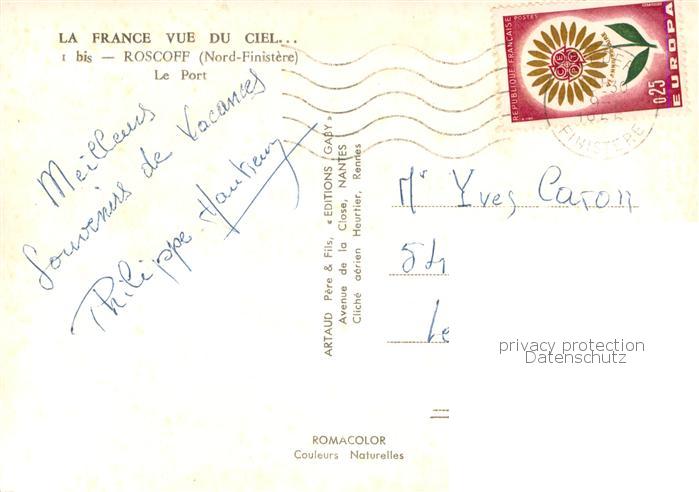 LA FRANCE VUE DU CIEL...
1 bis — ROSCOFF (Nord-Finistère)
Le Port
Meilleurs
Souvenirs de Vacances
Philippe
ARTAUD Père & Fils, «EDITIONS GABY»
Avenue de la Close, NANTES
Cliché aérien Heurtier, Rennes
REPUBLIQUE FRANÇAISE
POSTES
EUROPA
0,25
FINISTERE
Mr Yves Caron
Le
privacy protection
Datenschutz
ROMACOLOR
Couleurs Naturelles